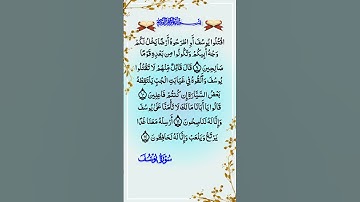 بسم الله الرحمن الرحيم
اقْتُلُوا يُوسُفَ أَوِ اطْرَحُوهُ أَرْضًا يَخْلُ لَكُمْ
وَجْهُ أَبِيكُمْ وَتَكُونُوا مِنْ بَعْدِهِ قَوْمًا
صَالِحِينَ ۝٩ قَالَ قَائِلٌ مِنْهُمْ لَا تَقْتُلُوا
يُوسُفَ وَأَلْقُوهُ فِي غَيَابَتِ الْجُبِّ يَلْتَقِطْهُ
بَعْضُ السَّيَّارَةِ إِنْ كُنْتُمْ فَاعِلِينَ ۝١٠
قَالُوا يَا أَبَانَا مَا لَكَ لَا تَأْمَنَّا عَلَىٰ يُوسُفَ
وَإِنَّا لَهُ لَنَاصِحُونَ ۝١١ أَرْسِلْهُ مَعَنَا غَدًا
يَرْتَعْ وَيَلْعَبْ وَإِنَّا لَهُ لَحَافِظُونَ ۝١٢
سُورَةُ يُوسُفَ